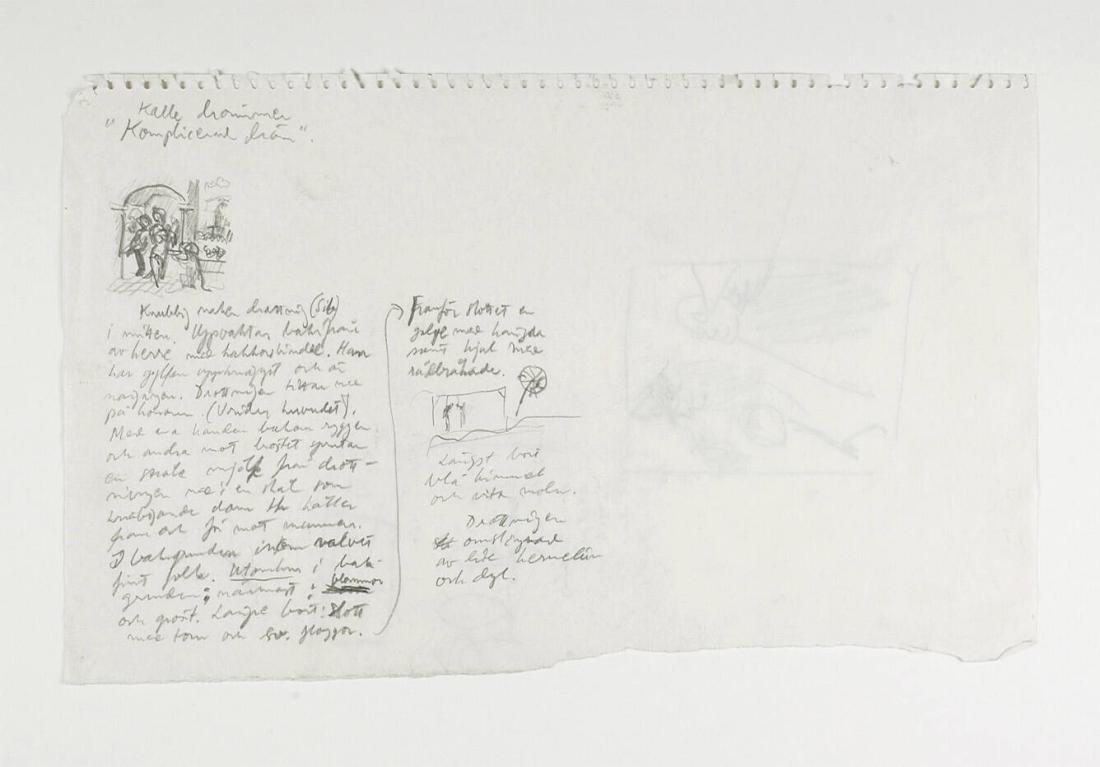 Kalle drömmer
"Komplicerad dröm".
Knubbig naken drottning (Sib)
i mitten. Uppvaktas bakifrån
av herre med
har gylfen uppknäppt och är
Drottningen tittar ned
på honom. (Vrider huvudet).
Med ena handen bakom ryggen
och andra mot bröstet sprutar
en stråle mjölk från drott-
ningen ned i en skål som
knäböjande dam håller
fram och för mot munnen.
I bakgrunden inom valvet
fint folk. Utomhus i bak-
grunden: närmast: blommor
och gräs. Längre bort: slott
med torn och sv. flaggor.
Framför slottet en
galge med hängda
samt hjul med
rådbråkade.
Längst bort
blå himmel
och vita moln.
Drottningen
omslingrad
av lite hermelin
och dyl.